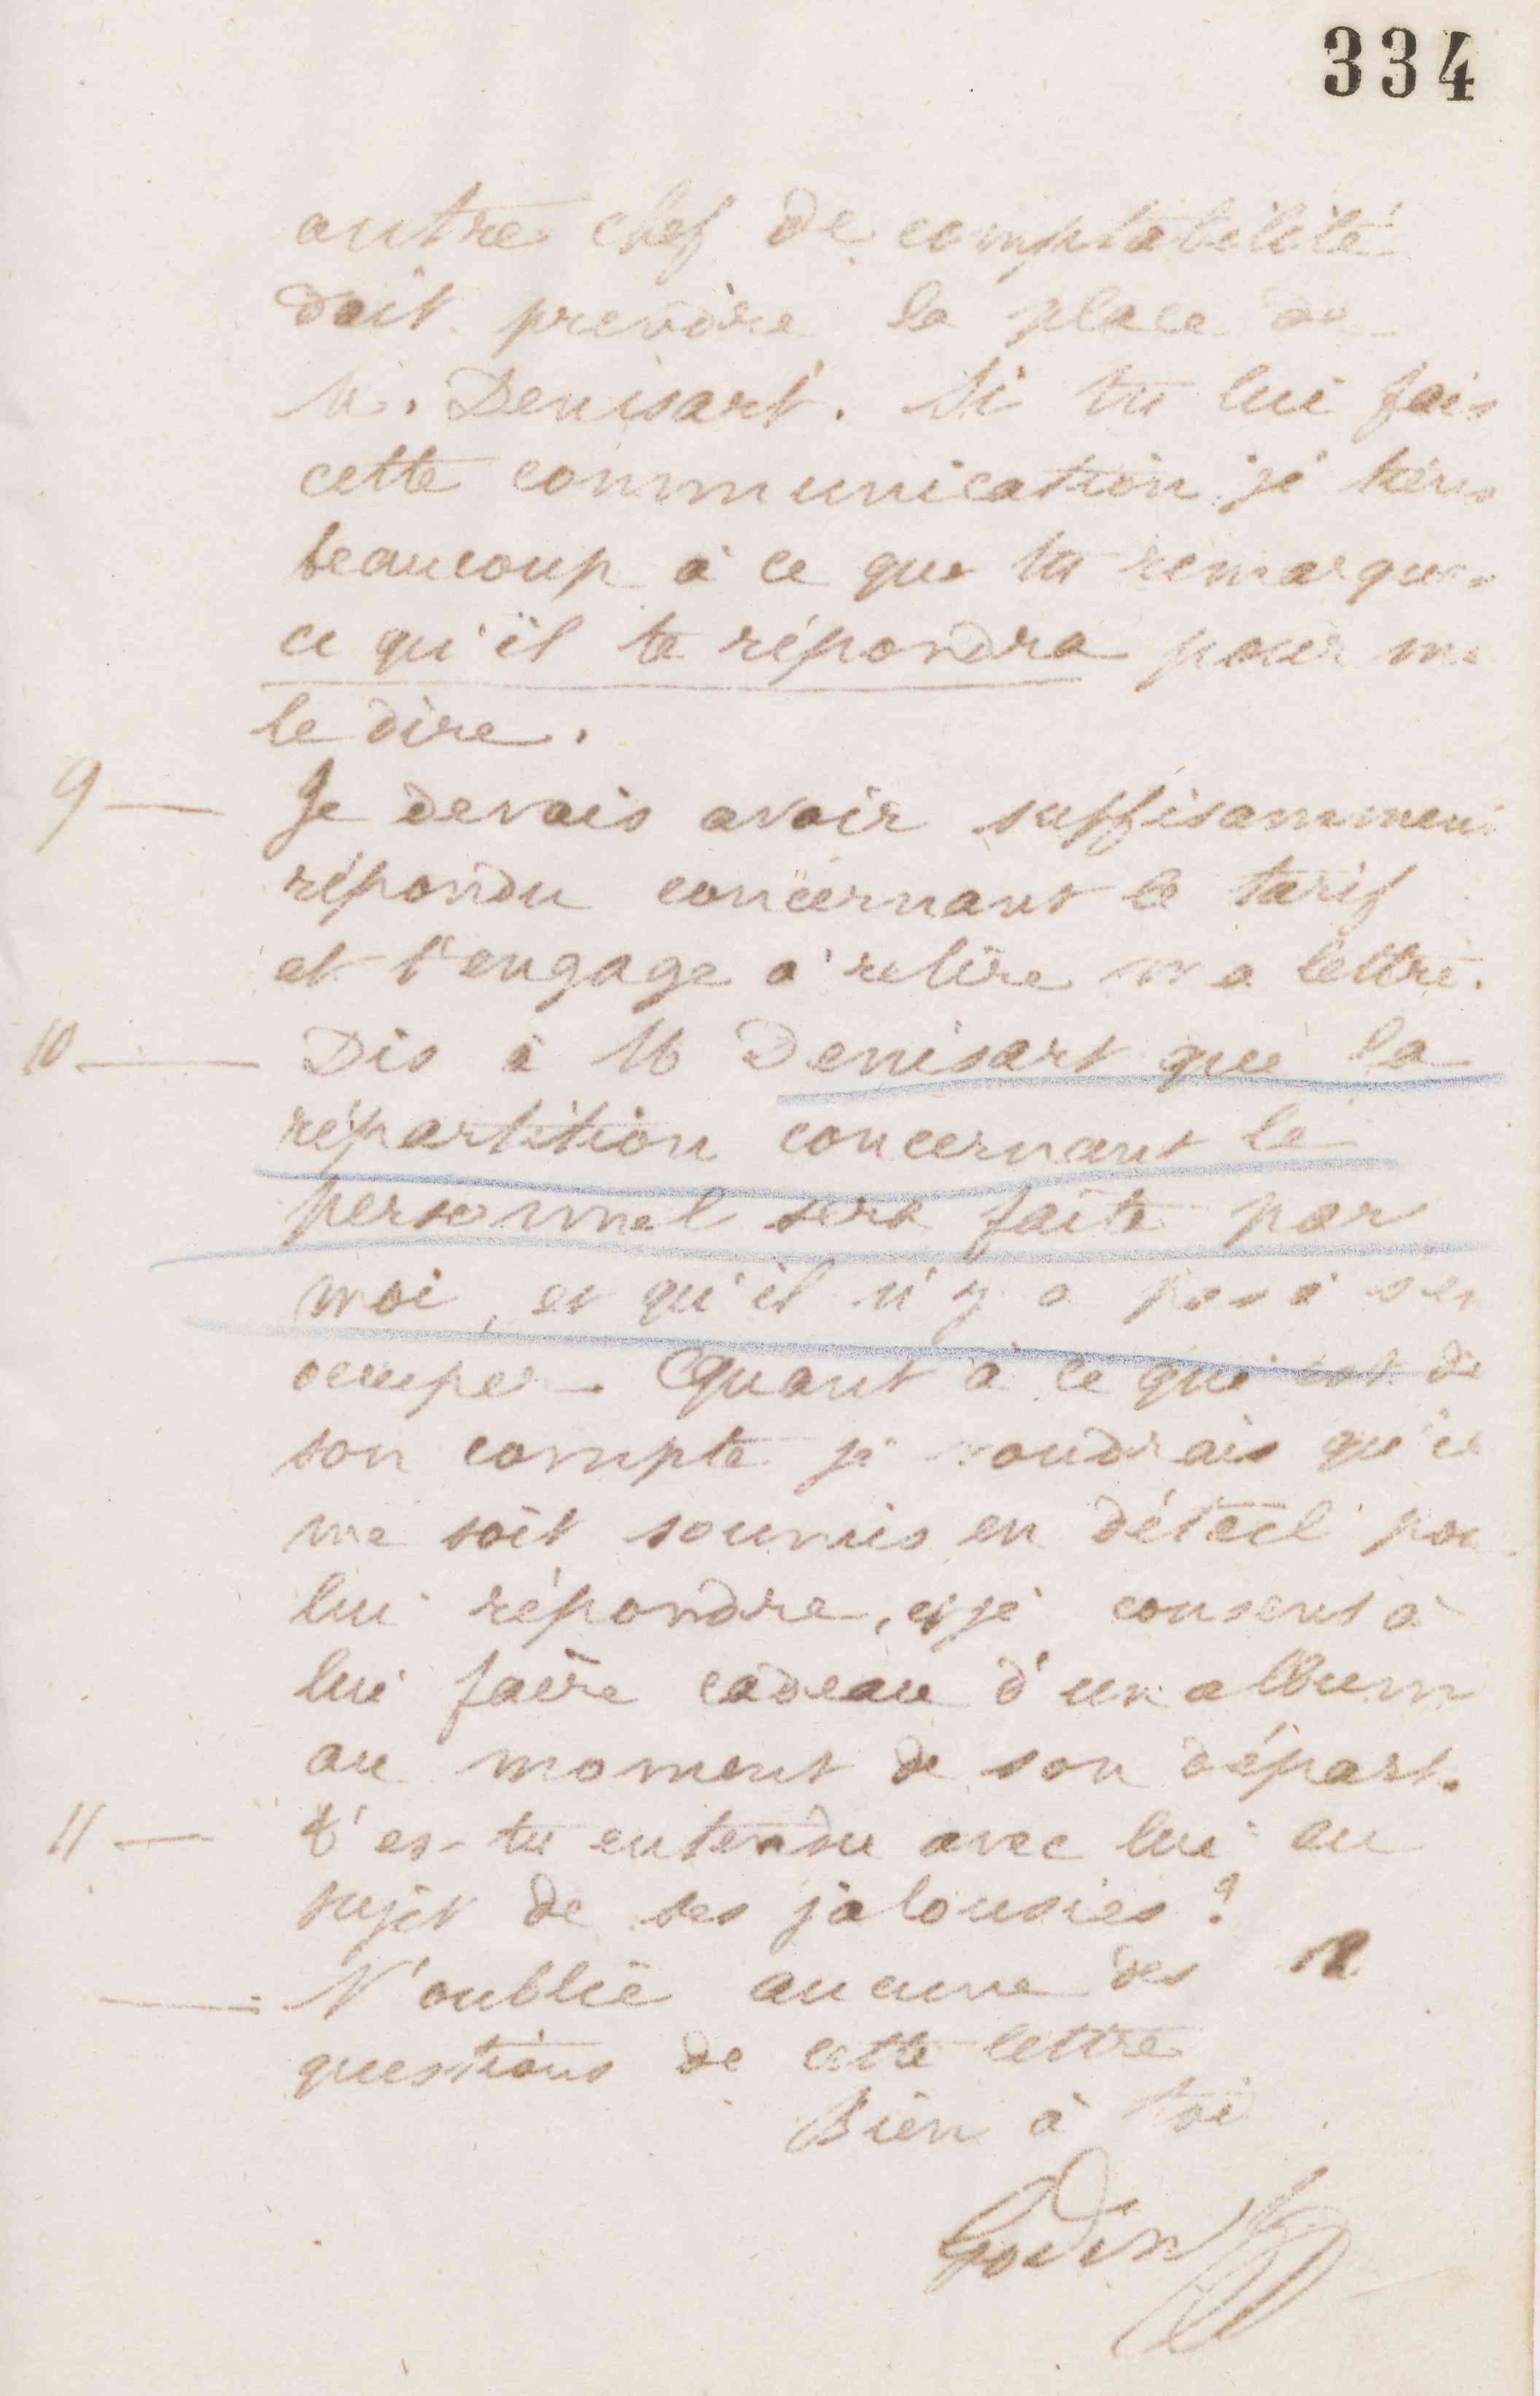 334
autre chef de comptabilité
doit prendre la place de
M. Denisart. Si tu lui fais
cette communication je tiens
beaucoup à ce que tu remarques
ce qu'il te répondra pour me
le dire.
9 — Je devais avoir suffisamment
répondu concernant le tarif
et t'engage à relire ma lettre.
10 — Dis à M Denisart que la
répartition concernant le
personnel sera faite par
moi, et qu'il n'y a pas à s'en
occuper. Quant à ce qui est de
son compte je voudrais qu'il
me soit soumis en détail pour
lui répondre, et je consens à
lui faire cadeau d'un album
au moment de son départ.
11 — t'es-tu entendu avec lui au
sujet de ses jalousies ?
— N'oublie aucune des
questions de cette lettre
Bien à toi
Godin